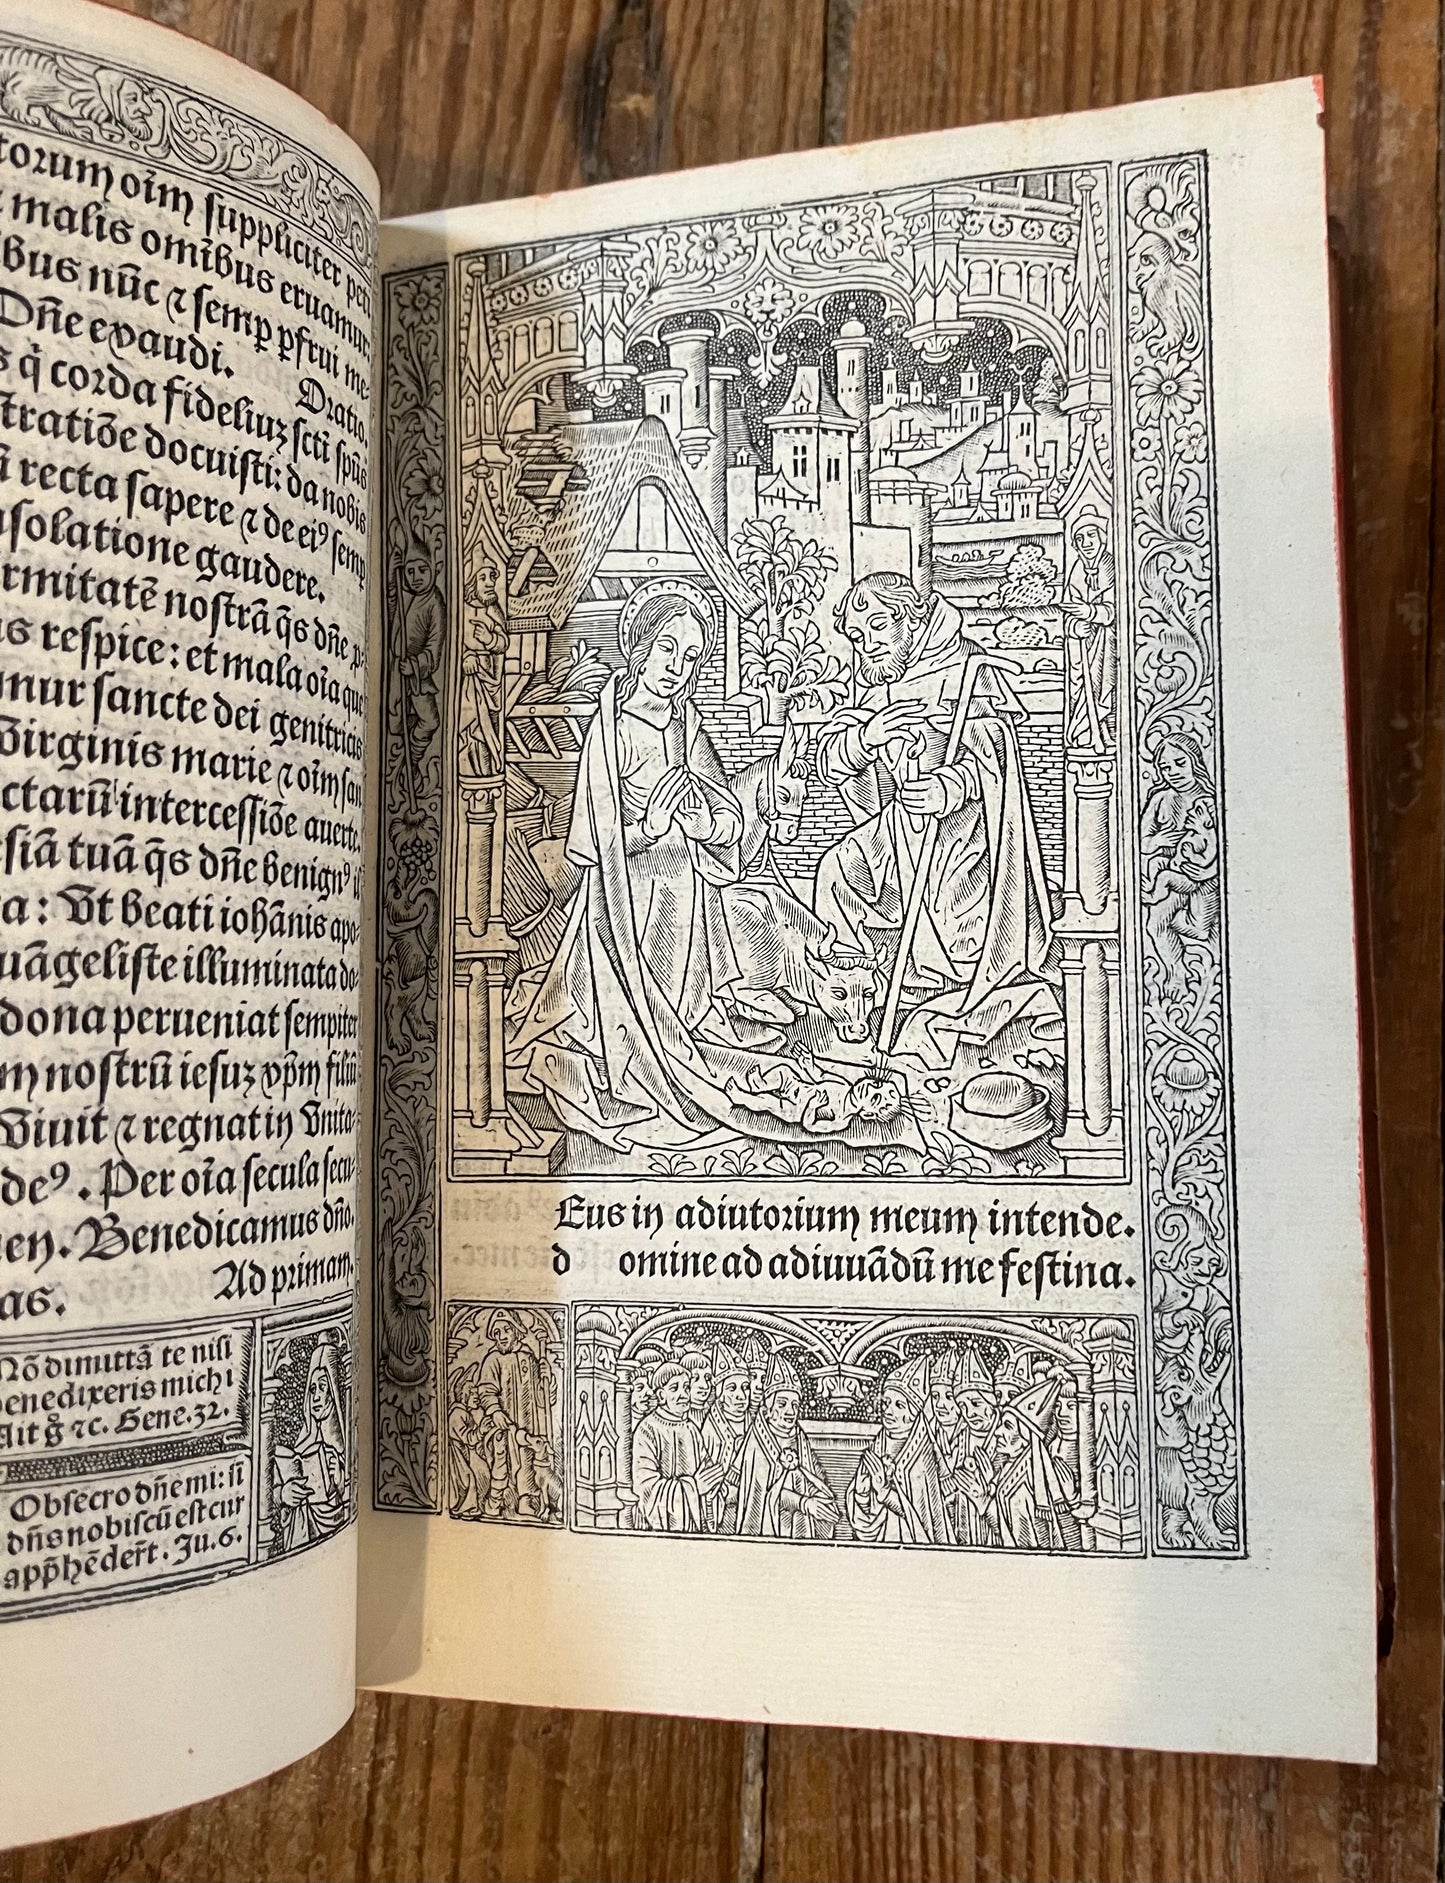 torum oīm suppliciter peti
malis omībus eruamur:
bus nūc ⁊ semꝑ ꝑfrui me
Dn̄e exaudi. Oratio.
s q̇ corda fideliuꝫ scti spūs
stratiōe docuisti: da nobis
recta sapere ⁊ de eiꝰ semꝑ
solatione gaudere.
rmitatē nostrā q̄s dn̄e
us respice: et mala oīa que
mur sancte dei genitricis
Virginis marie ⁊ oīm san
ctarū intercessiōe auerte.
esiā tuā q̄s dn̄e benignꝰ il
a: Vt beati iohānis apo
uāgeliste illuminata do-
dona perueniat sempiter
m nostrū iesuꝫ xp̄m filiū
Viuit ⁊ regnat in Vnita-
deꝰ. Per oīa secula secu-
en. Benedicamus dn̄o.
as. Ad primam.
Nō dimittā te nisi
benedixeris michi
Ait g̊ ⁊c. Gene.32.
Obsecro dn̄e mi: si
dn̄s nobiscū est cur
app̄hēderūt. Iu.6.
Eus in adiutorium meum intende.
d omine ad adiuuādū me festina.